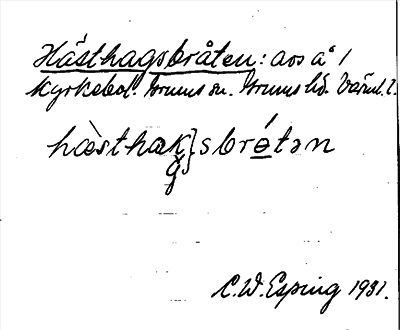 Hästhagsbråten: avs å 1
Kyrkebol. Grums sn. Grums hd. Värml. l.
hæ̀sthak}sbrétən
g
C.W. Esping 1931.